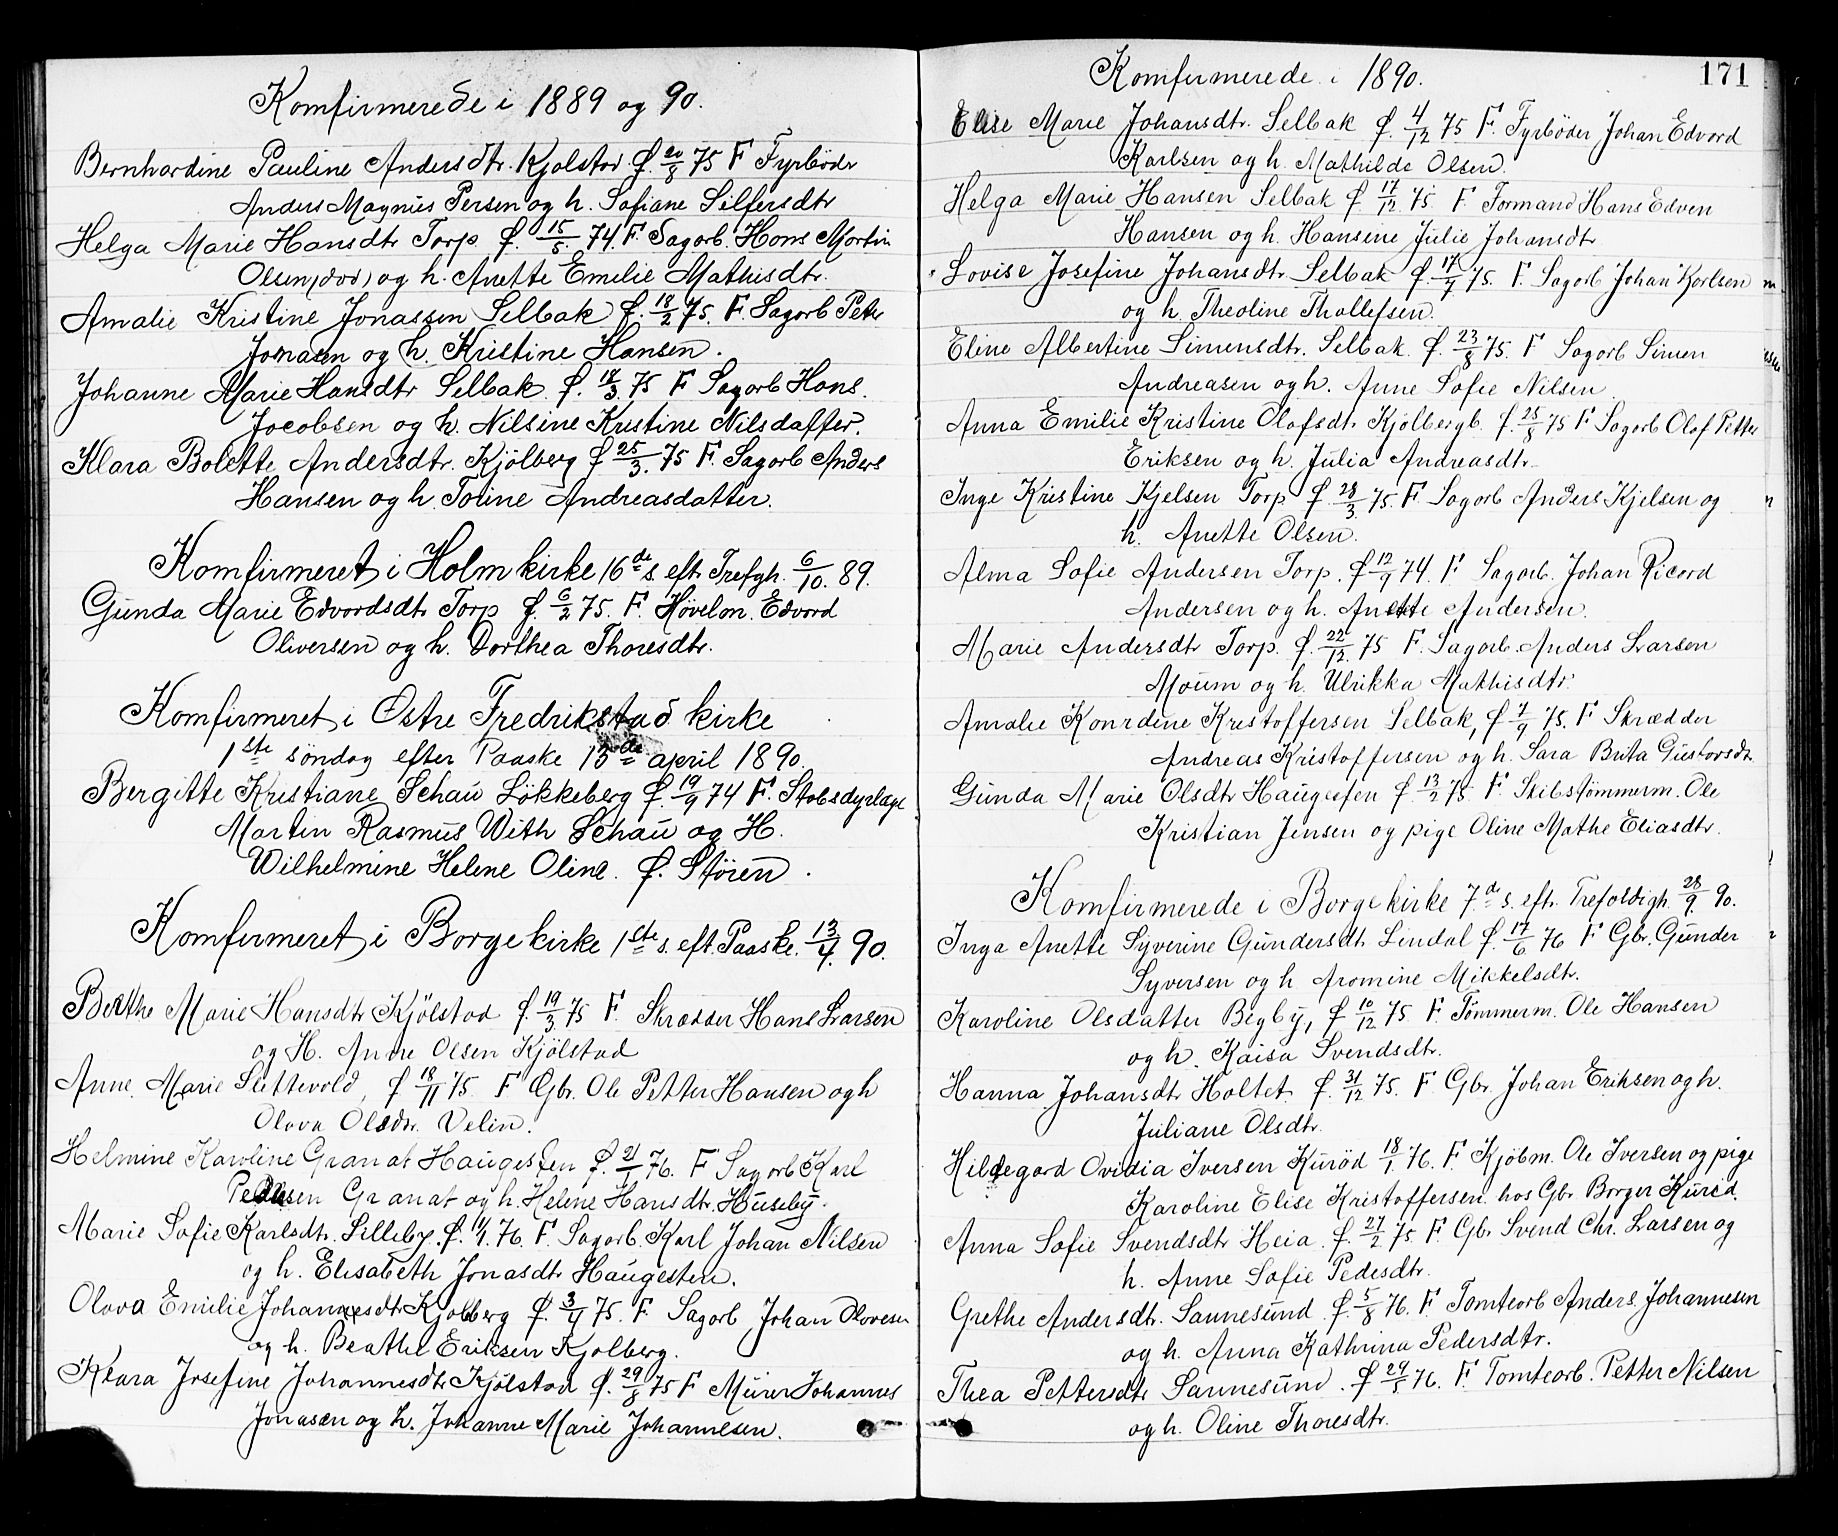 Komfirmerede i 1889 og 90.
Bernhardine Pauline Andersdtr. Kjølstad f. 20/8 75 F Fyrbøder
Anders Magnus Persen og h. Sofiane Silfersdtr
Helga Marie Hansdtr Torp f. 15/5. 74. F. Sagarb. Hans Martin
Olsen (død) og h. Anette Emelie Mathisdtr.
Amalie Kristine Jonassen Selbak f. 18/2 75. F. Sagarb Peter
Jonasen og h. Kristine Hansen.
Johanne Marie Hansdtr Selbak f. 18/3. 75 F Sagarb Hans.
Jacobsen og h. Nilsine Kristine Nilsdatter.
Klara Bolette Andersdtr. Kjölberg f 25/3. 75 F. Sagarb Anders
Hansen og h. Toline Andreasdatter.
Komfirmeret i Holm kirke 16de s. eft. Trefgh. 6/10. 89.
Gunda Marie Edvardsdtr Torp f. 6/2 75. F. Høvelarb. Edvard
Oliversen og h. Dorthea Thoresdtr.
Komfirmeret i Østre Fredrikstad kirke
1ste söndag efter Paaske 13de april 1890.
Bergitte Kristiane Schau Lökkeberg f. 19/9 74 F. Stabsdyrlæge
Martin Rasmus With Schau og H.
Wilhelmine Helene Oline. f. Støren.
Komfirmeret i Borge kirke 1ste s. eft. Paaske. 13/4. 90.
Berthe Marie Hansdtr Kjölstad f. 19/3 75 F. Skrædder Hans Larsen
og H. Anne Olsen Kjölstad
Anne. Marie Slettevold, f 18/11 75. F Gbr. Ole Petter Hansen og h
Olava Olsdtr. Velin.
Helmine Karoline Granat Haugesten f. 21/1 76. F Sagarb Karl
Pedersen Granat og h. Helene Hansdtr. Huseby.
Marie Sofie Karlsdtr. Silleby. f. 11/1. 76. F. Sagarb. Karl Johan Nilsen
og h. Elisabeth Jonasdtr Haugesten.
Olava Emilie Johannesdtr Kjolberg f. 3/4 75. F. Sagarb Johan Olavesen
og h. Beathe Eriksen Kjolberg.
Klara Josefine Johannesdtr Kjölstad f. 29/8 75 F Murer Johannes
Jonasen og h. Johanne Marie Johannesen.
Komfirmerede i 1890.
171
Elise Marie Johansdtr. Selbak f. 4/12 75 F. Fyrbøder Johan Edvard
Karlsen og h. Mathilde Olsen.
Helga Marie Hansen Selbak f. 17/12. 75. F. Formand Hans Edven
Hansen og h. Hansine Julie Johansdtr
Lovise Josefine Johansdtr. Selbak f. 17/7 75. F. Sagarb Johan Karlsen
og h. Theoline Thollefsen.
Eline Albertine Simensdtr. Selbak. f. 23/8 75. F Sagarb Simen
Andreasen og h. Anne Sofie Nilsen
Anna Emilie Kristine Olafsdtr Kjölbergb. f. 25/8 75 F Sagarb Olaf Petter
Eriksen og h. Julia Andreasdtr.
Inge Kristine Kjelsen Torp f. 28/3. 75. F. Sagarb Anders Kjelsen og
h. Anette Olsen.
Alma Sofie Andersen Torp. f 12/9 74. F. Sagarb. Johan Ricard
Andersen og h. Anette Andersen.
Marie Andersdtr Torp. f. 22/12. 75 F. Sagarb. Anders Larsen
Moum og h. Ulrikka Mathisdtr.
Amalie Konrdine Kristoffersen Selbak, f 7/9 75. F Skrædder
Andreas Kristoffersen og h. Sara Brita Gustavsdtr
Gunda Marie Olsdtr Haugesten f. 13/2 75. F. Skibstømmerm. Ole
Kristian Jensen og pige Oline Mathe Eliasdtr.
Komfirmerede i Borge kirke 7.de s. eft. Trefoldigh. 28/9. 90.
Inga Anette Syverine Gundersdtr Lindal f. 17/6 76 F Gbr. Gunder
Syversen og h Aromine Mikkelsdtr.
Karoline Olsdatter Begby, f 10/12 75 F. Tömmerm. Ole Hansen
og h. Kaisa Svendsdtr.
Hanna Johansdtr Holtet f. 31/12 75. F Gbr. Johan Eriksen og h.
Juliane Olsdtr.
Hildegard Ovidia Iversen Kuröd 18/1 76. F. Kjöbm. Ole Iversen og pige
Karoline Elise Kristoffersen hos Gbr Borger Kuröd.
Anna Sofie Svendsdtr Heia f. 27/2 75 F Gbr Svend Chr. Larsen og
h. Anne Sofie Pedesdtr.
Grethe Andersdtr. Sannesund f. 5/8 76. F Tomtearb Anders Johannesen
og h. Anna Kathrina Pedersdtr.
Thea Pettersdtr Sannesund. f 24/5 76. F. Tomtearb. Petter Nilsen
og h. Oline Thoresdtr.